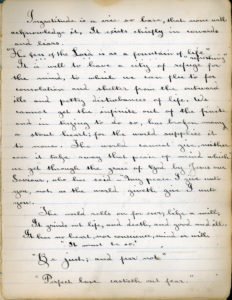 Ingratitude is a vice so base, that none will
acknowledge it, It exists chiefly in cowards
and liars.
"The fear of the Lord is as a fountain of life."
It is well to have a city of refuge, "refreshing"
the mind, to which we can flee to for
consolation and shelter from the outward
ills and petty disturbances of life. We
cannot get the infinite out of the finite
and in trying to do so, has broken many
a stout heart, for the world supplies it
to none. The world cannot give, neither
can it take away that peace of mind which
we get through the grace of God by Jesus our
Saviour, who has said "My peace I give unto
you, not as the world giveth give I unto
you.
The world rolls on for ever, like a mill;
It grinds out life, and death, and good and ill;
It has no heart, nor conscience, mind or will
"It must be so."
"Be just, and fear not"
"Perfect love casteth out fear."